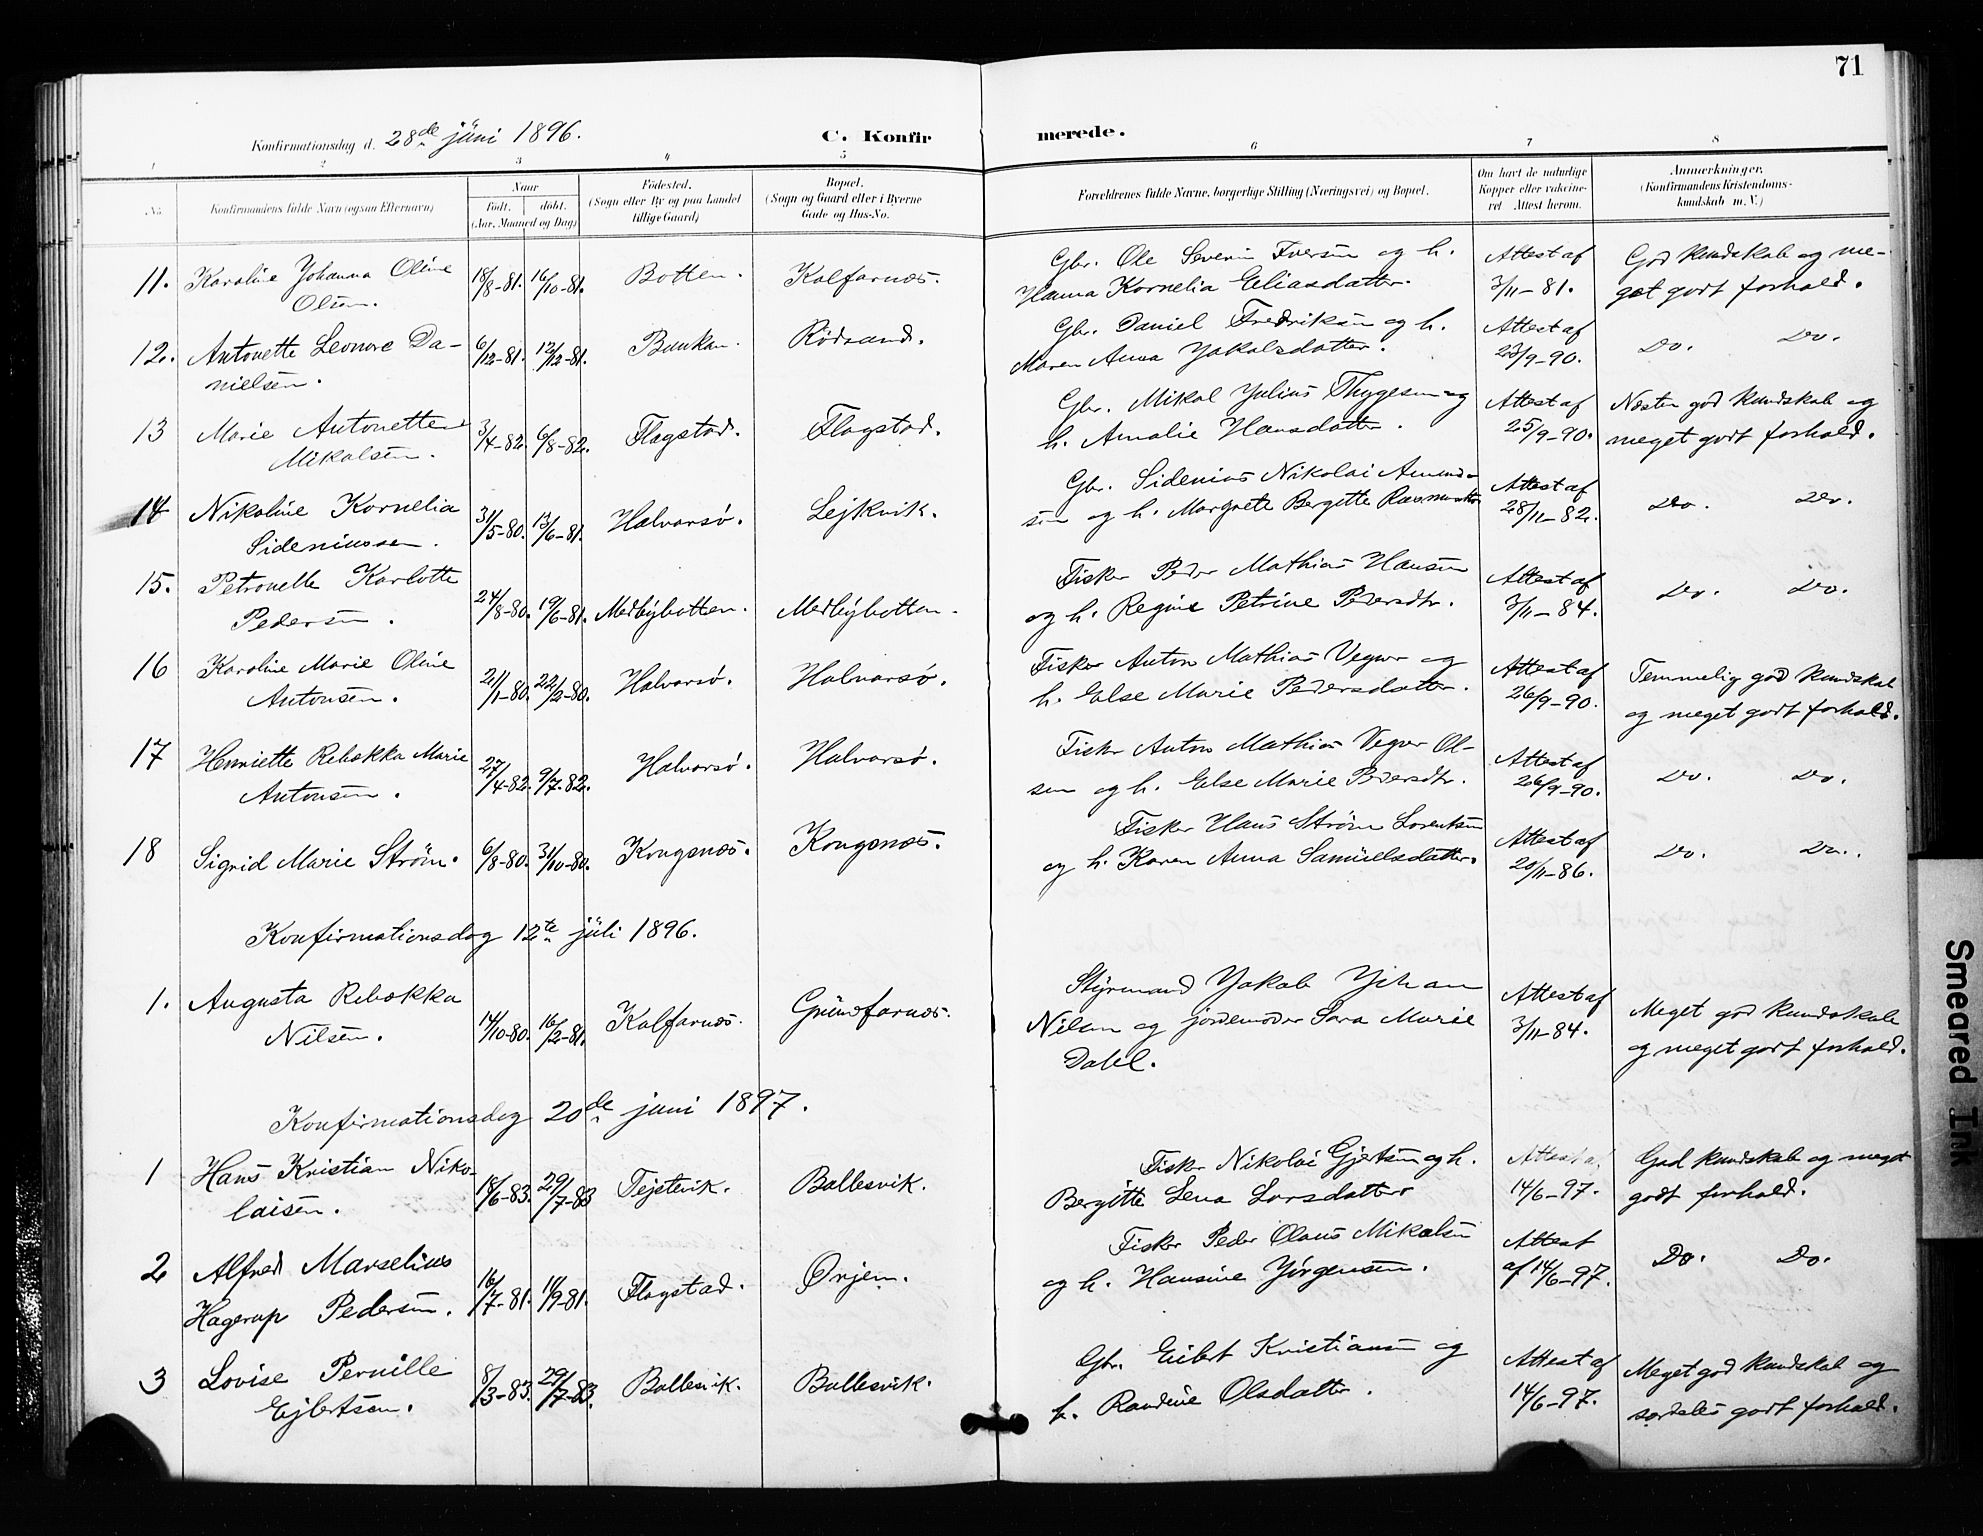 71
Konfirmationsdag d. 28de juni 1896.
C. Konfirmerede.
1 2 3 4 5 6 7 8
No.
Konfirmandens fulde Navn (ogsaa Efternavn)
Naar
født. døbt.
(Aar, Maaned og Dag)
Fødested.
(Sogn eller By og paa Landet
tillige Gaard)
Bopæl.
(Sogn og Gaard eller i Byerne
Gade og Hus-No.
Forældrenes fulde Navne, borgerlige Stilling (Næringsvei) og Bopæl.
Om havt de naturlige
Kopper eller vaccine-
ret Attest herom.
Anmærkninger.
(Konfirmandens Kristendoms-
kundskab m. V.)
11. Karoline Johanna Oline
Olsen.
18/8-81. 16/10-81. Botten. Kalfarnæs.
Gbr. Ole Severin Iversen og h.
Hanna Kornelia Eliasdatter.
Attest af
3/11-81.
God kundskab og me-
get godt forhold.
12. Antonette Leonore Da-
nielsen.
6/12-81. 12/12-81. Bunkan. Rödsand.
Gbr. Daniel Fredriksen og h.
Maren Anna Jakobsdatter.
Attest af
23/9-90.
Do. Do.
13 Marie Antonette
Mikalsen.
3/4-82. 6/8-82. Flagstad. Flagstad.
Gbr. Mikal Julius Thygesen og
h. Amalie Hansdatter.
Attest af
25/9-90.
Næsten god kundskab og
meget godt forhold.
14 Nikoline Kornelia
Sideniussen.
31/5-80. 13/6-81. Halvarsø. Lejkvik.
Gbr. Sidenius Nikolai Amund-
sen og h. Margrete Bergitte
Attest af
28/11-82.
Do. Do.
15. Petronelle Karlotte
Pedersen.
24/8-80. 19/6-81. Medbybotten. Medbybotten.
Fisker Peder Mathias Hansen
og h. Regine Petrine Pedersdtr.
Attest af
3/11-84.
Do. Do.
16 Karoline Marie Oline
Antonsen.
21/1-80. 22/2-80. Halvarsø. Halvarsø.
Fisker Anton Mathias Vegner og
h. Else Marie Pedersdatter.
Attest af
26/9-90.
Temmelig god kundskab
og meget godt forhold.
17 Henriette Rebekka Marie
Antonsen.
27/4-82. 9/7-82. Halvarsø. Halvarsø.
Fisker Anton Mathias Vegner Ol-
sen og h. Else Marie Pedersdtr.
Attest af
26/9-90.
Do. Do.
18 Sigrid Marie Strøm.
6/8-80. 31/10-80. Kongsnæs. Kongsnæs.
Fisker Hans Strøm Lorentsen
og h. Karen Anna Samuelsdatter.
Attest af
20/11-86.
Do. Do.
Konfirmationsdag 12te juli 1896.
1. Augusta Rebekka
Nilsen.
14/10-80. 16/2-81. Kalfarnæs. Grundfarnæs.
Styrmand Jakob Johan
Nilsen og jordemoder Sara Marie
Dahl.
Attest af
3/11-84.
Meget god kundskab
og meget godt forhold.
Konfirmationsdag 20de juni 1897.
1 Hans Kristian Niko-
laisen.
18/6-83. 29/7-83 Tejstevik. Ballesvik.
Fisker Nikolai Gjertsen og h.
Bergitte Lena Larsdatter
Attest af
14/6-97.
God kundskab og meget
godt forhold.
2 Alfred Marselius
Hagerup Pedersen.
16/7-81. 11/9-81. Flagstad. Ørjem.
Fisker Peder Olaus Mikalsen
og h. Hansine Jörgensen.
Attest
af 14/6-97.
Do. Do.
3 Lovise Pernille
Ejlertsen.
8/3-83. 29/7-83. Ballesvik. Ballesvik.
Gbr. Eilert Kristiansen og
h. Randine Olsdatter.
Attest af
14/6-97.
Meget god kundskab og
særdeles godt forhold.
Smeared Ink